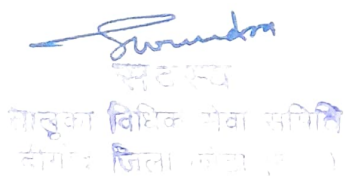 Surendra
सदस्य
तालुका विधिक सेवा समिति
जिला